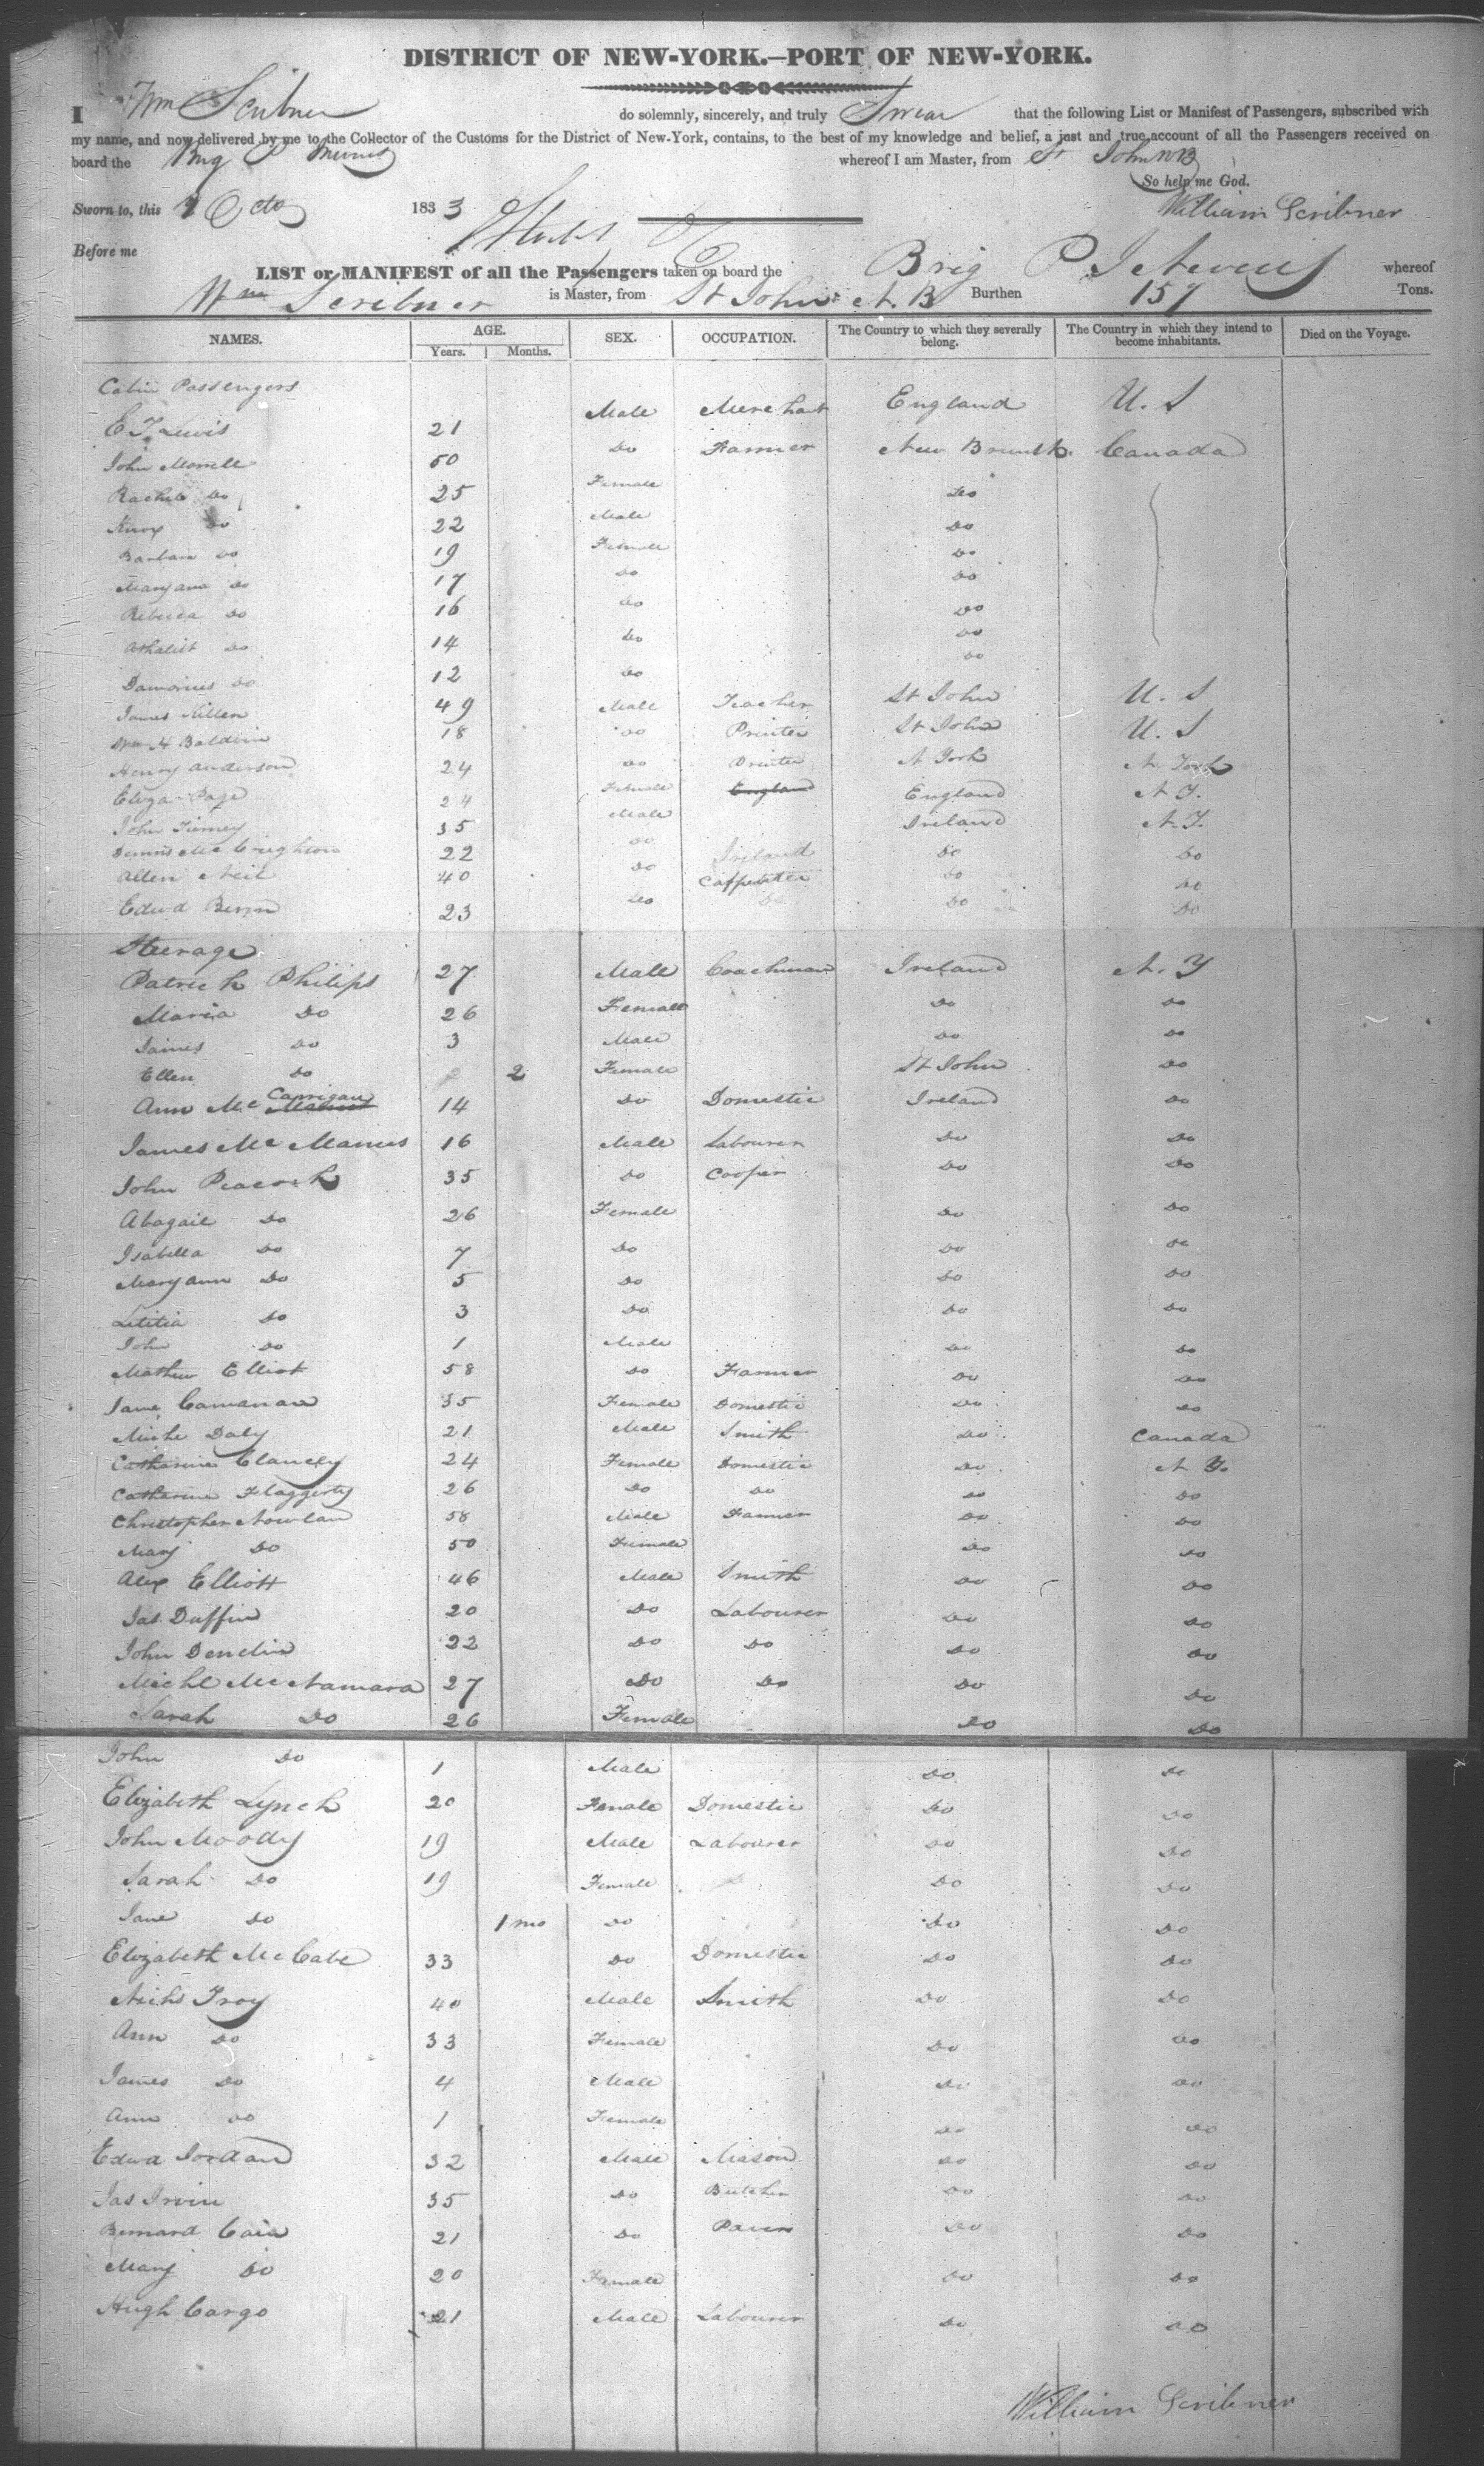 DISTRICT OF NEW-YORK.—PORT OF NEW-YORK.
I Wm Scribner do solemnly, sincerely, and truly Swear that the following List or Manifest of Passengers, subscribed with
my name, and now delivered by me to the Collector of the Customs for the District of New-York, contains, to the best of my knowledge and belief, a just and true account of all the Passengers received on
board the Brig P whereof I am Master, from St John NB
So help me God.
Sworn to, this Octo 1833 William Scribner
Before me
LIST or MANIFEST of all the Passengers taken on board the Brig P I Nevius whereof
Wm Scribner is Master, from St John N. B Burthen 157 Tons.
NAMES. AGE. SEX. OCCUPATION. The Country to which they severally belong. The Country in which they intend to become inhabitants. Died on the Voyage.
Years. Months.
Cabin Passengers
C T Lewis 21 Male Merchant England U. S
John Morrell 50 Do Farmer New Brunsk. Canada
Rachel Do 25 Female Do
Do 22 Male Do
Barbara Do 19 Female Do
Maryann Do 17 Do Do
Rebecca Do 16 Do Do
Do 14 Do Do
Damorius Do 12 Do Do
James Killen 49 Male Teacher St John U. S
Wm H Baldwin 18 Do Printer St John U. S
Henry Anderson 24 Do Printer N York N. York
Eliza Page 24 Female England England N Y.
John Tierney 35 Male Ireland N. Y.
Dennis McCrighton 22 Do Ireland Do Do
Allen Neil 40 Do Carpenter Do Do
Edwd Beron 23 Do Do Do Do
Steerage
Patrick Philips 27 Male Coachman Ireland N. Y
Maria Do 26 Female Do Do
James Do 3 Male Do Do
Ellen Do 2 Female St John Do
Ann Mc Carrigan 14 Do Domestic Ireland Do
James Mc Manus 16 Male Labourer Do Do
John Peacock 35 Do Cooper Do Do
Abagail Do 26 Female Do Do
Isabella Do 7 Do Do Do
Maryann Do 5 Do Do Do
Letitia Do 3 Do Do Do
John Do 1 Male Do Do
Mathew Elliot 58 Do Farmer Do Do
Jane Camanan 35 Female Domestic Do Do
Michl Daly 21 Male Smith Do Canada
Catharine Clancey 24 Female Domestic Do N Y.
Catharine Flaggerty 26 Do Do Do Do
Christopher Nowlan 58 Male Farmer Do Do
Mary Do 50 Female Do Do
Alex Elliott 46 Male Smith Do Do
Jas. Duffin 20 Do Labourer Do Do
John Denelin 22 Do Do Do Do
Michl McNamara 27 Do Do Do Do
Sarah Do 26 Female Do Do
John Do 1 Male Do Do
Elizabeth Lynch 20 Female Domestic Do Do
John Moody 19 Male Labourer Do Do
Sarah Do 19 Female Do Do
Jane Do 1 mo Do Do Do
Elizabeth McCabe 33 Do Domestic Do Do
Nichs Troy 40 Male Smith Do Do
Ann Do 33 Female Do Do
James Do 4 Male Do Do
Ann Do 1 Female Do Do
Edwd Jordan 32 Male Mason Do Do
Jas Irvin 35 Do Butcher Do Do
Bernard Cain 21 Do Paver Do Do
Mary Do 20 Female Do Do
Hugh Cargo 21 Male Labourer Do Do
William Scribner